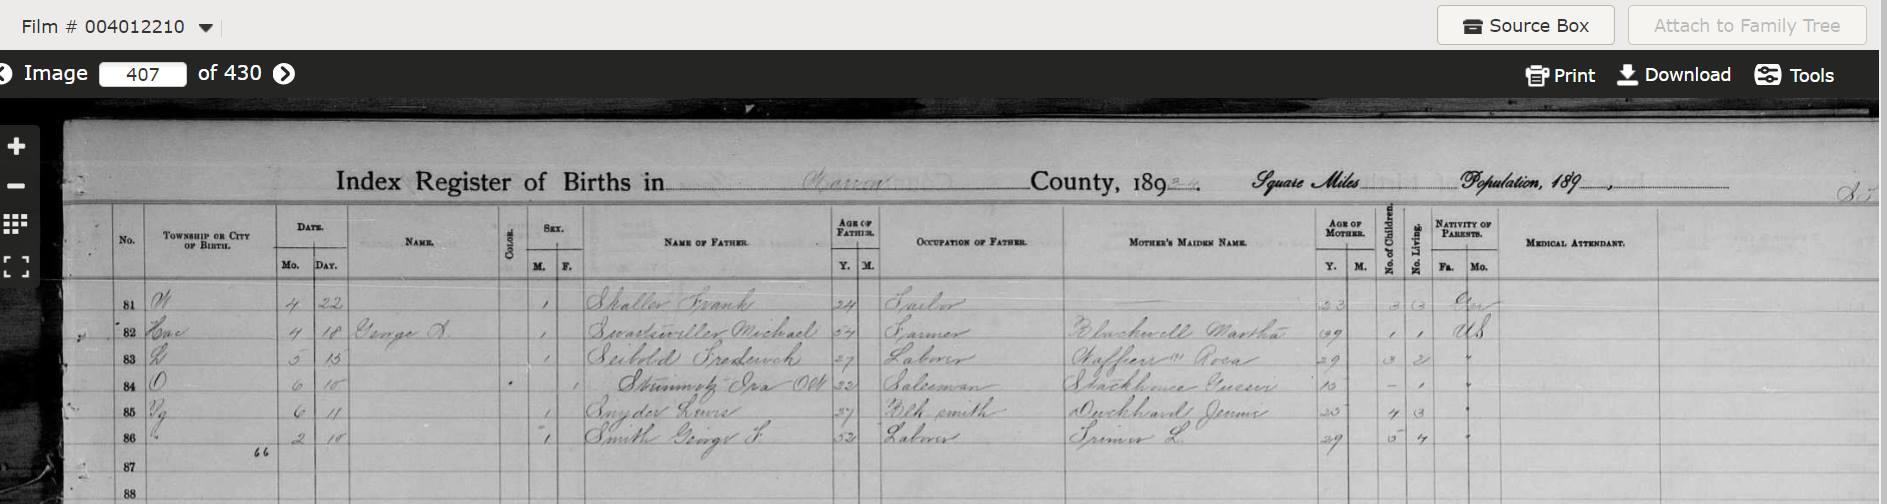 Film # 004012210
Source Box Attach to Family Tree
Image 407 of 430 Print Download Tools
Index Register of Births in Marion County, 189 . Square Miles Population, 189 ,
No. TOWNSHIP OR CITY OF BIRTH. DATE. Mo. DAY. NAME. COLOR. SEX. M. F. NAME OF FATHER. AGE OF FATHER. Y. M. OCCUPATION OF FATHER. MOTHER'S MAIDEN NAME. AGE OF MOTHER. Y. M. No. of Children. No. Living. NATIVITY OF PARENTS. Fa. Mo. MEDICAL ATTENDANT.
81 W 4 22 1 Shaller Frank 24 Tailor 23 3 3
82 4 18 George 1 Michael 54 Farmer Blackwell Martha 39 1 1 US
83 5 15 1 Seibold Frederick 27 Laborer Rosa 29 3 2 "
84 O 6 10 1 Steinmetz Ira 22 Salesman Stackhouse - 1 "
85 6 11 1 Snyder Lewis 27 Blk smith Jennie 4 3 "
86 " 2 10 1 Smith George F. 52 Laborer L. 29 5 4 "
66
87
88